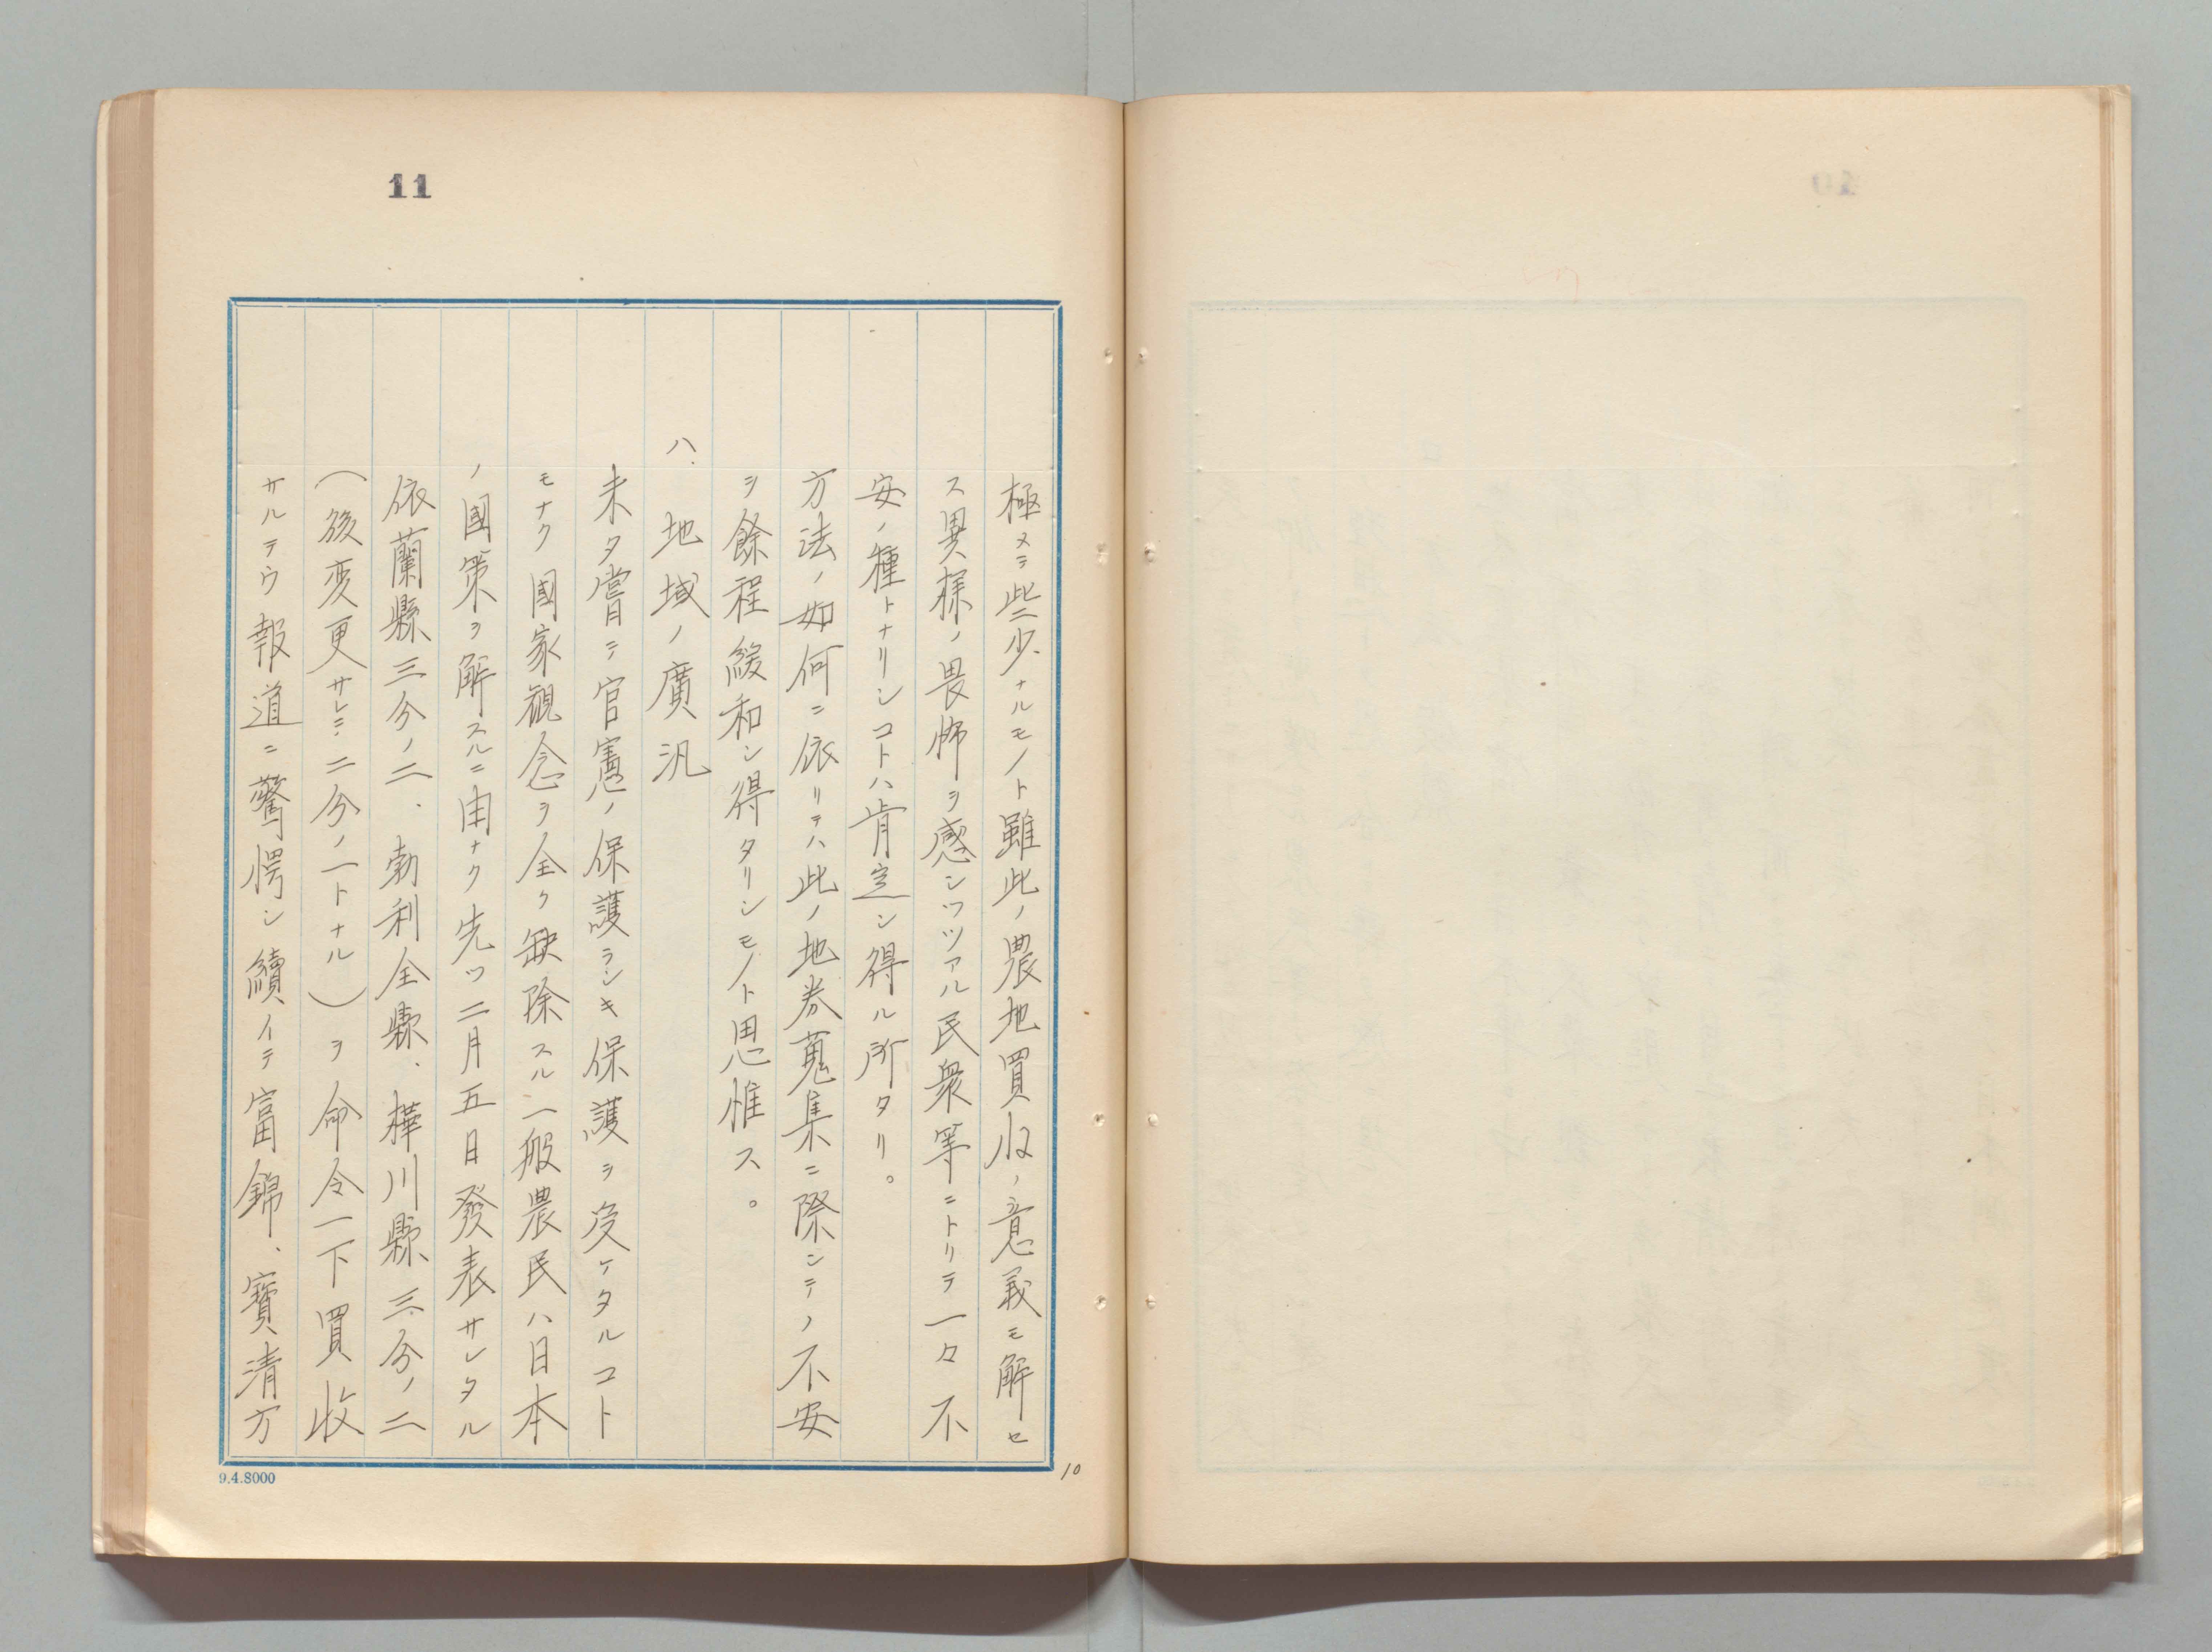 11
極メテ些少ナルモノト雖此ノ農地買收ノ意義モ解セ
ス異様ノ畏怖ヲ感シツツアル民衆等ニトリテ一々不
安ノ種トナリシコトハ肯定シ得ル所タリ。
方法ノ如何ニ依リテハ此ノ地券蒐集ニ際シテノ不安
ヲ餘程緩和シ得タリシモノト思惟ス。
ハ、地域ノ廣汎
未タ嘗テ官憲ノ保護ラシキ保護ヲ受ケタルコト
モナク國家観念ヲ全ク缺除スル一般農民ハ日本
ノ國策ヲ解スルニ由ナク先ツ二月五日發表サレタル
依蘭縣三分ノ二、勃利全縣、樺川縣三分ノ二
(後変更サレ三、二分ノ一トナル)ヲ命令一下買收
サルテウ報道ニ驚愕シ續イテ富錦、寶清方
9.4.8000
10